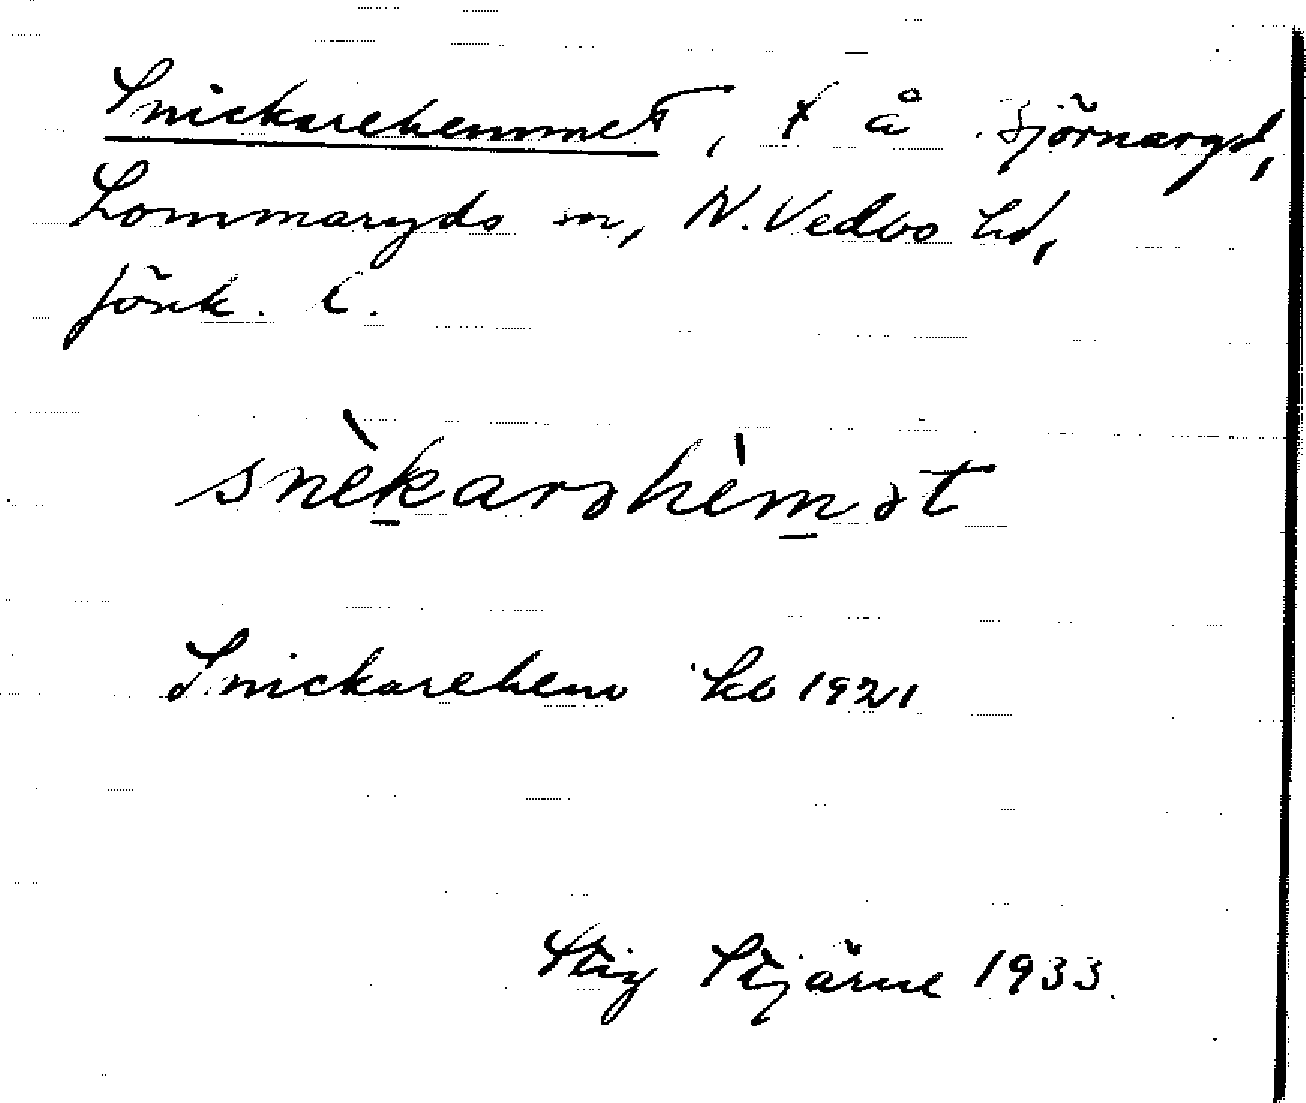 Snickarehemmet, t å Sjörnaryd,
Lommaryds sn, N. Vedbo hd,
Jönk. l.
snèkarəhèmət
Snickarehem kb 1921
Stig Stjärne 1933.